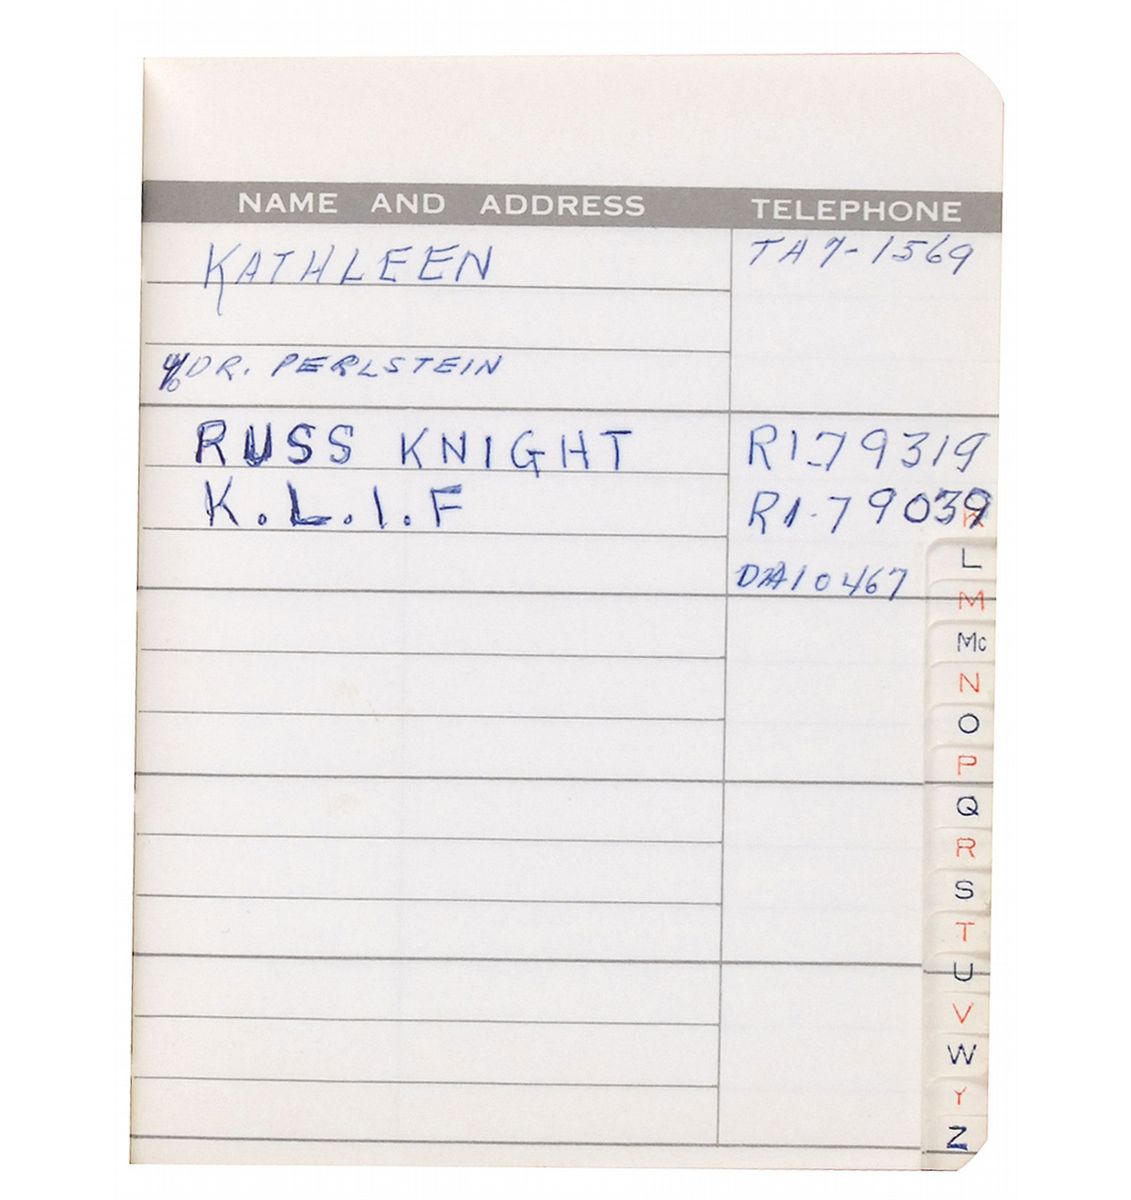 NAME AND ADDRESS TELEPHONE
KATHLEEN TA 7-1569
% DR. PERLSTEIN
RUSS KNIGHT RI-79319
K.L.I.F RI-79039
DA10467
K
L
M
Mc
N
O
P
Q
R
S
T
U
V
W
Y
Z